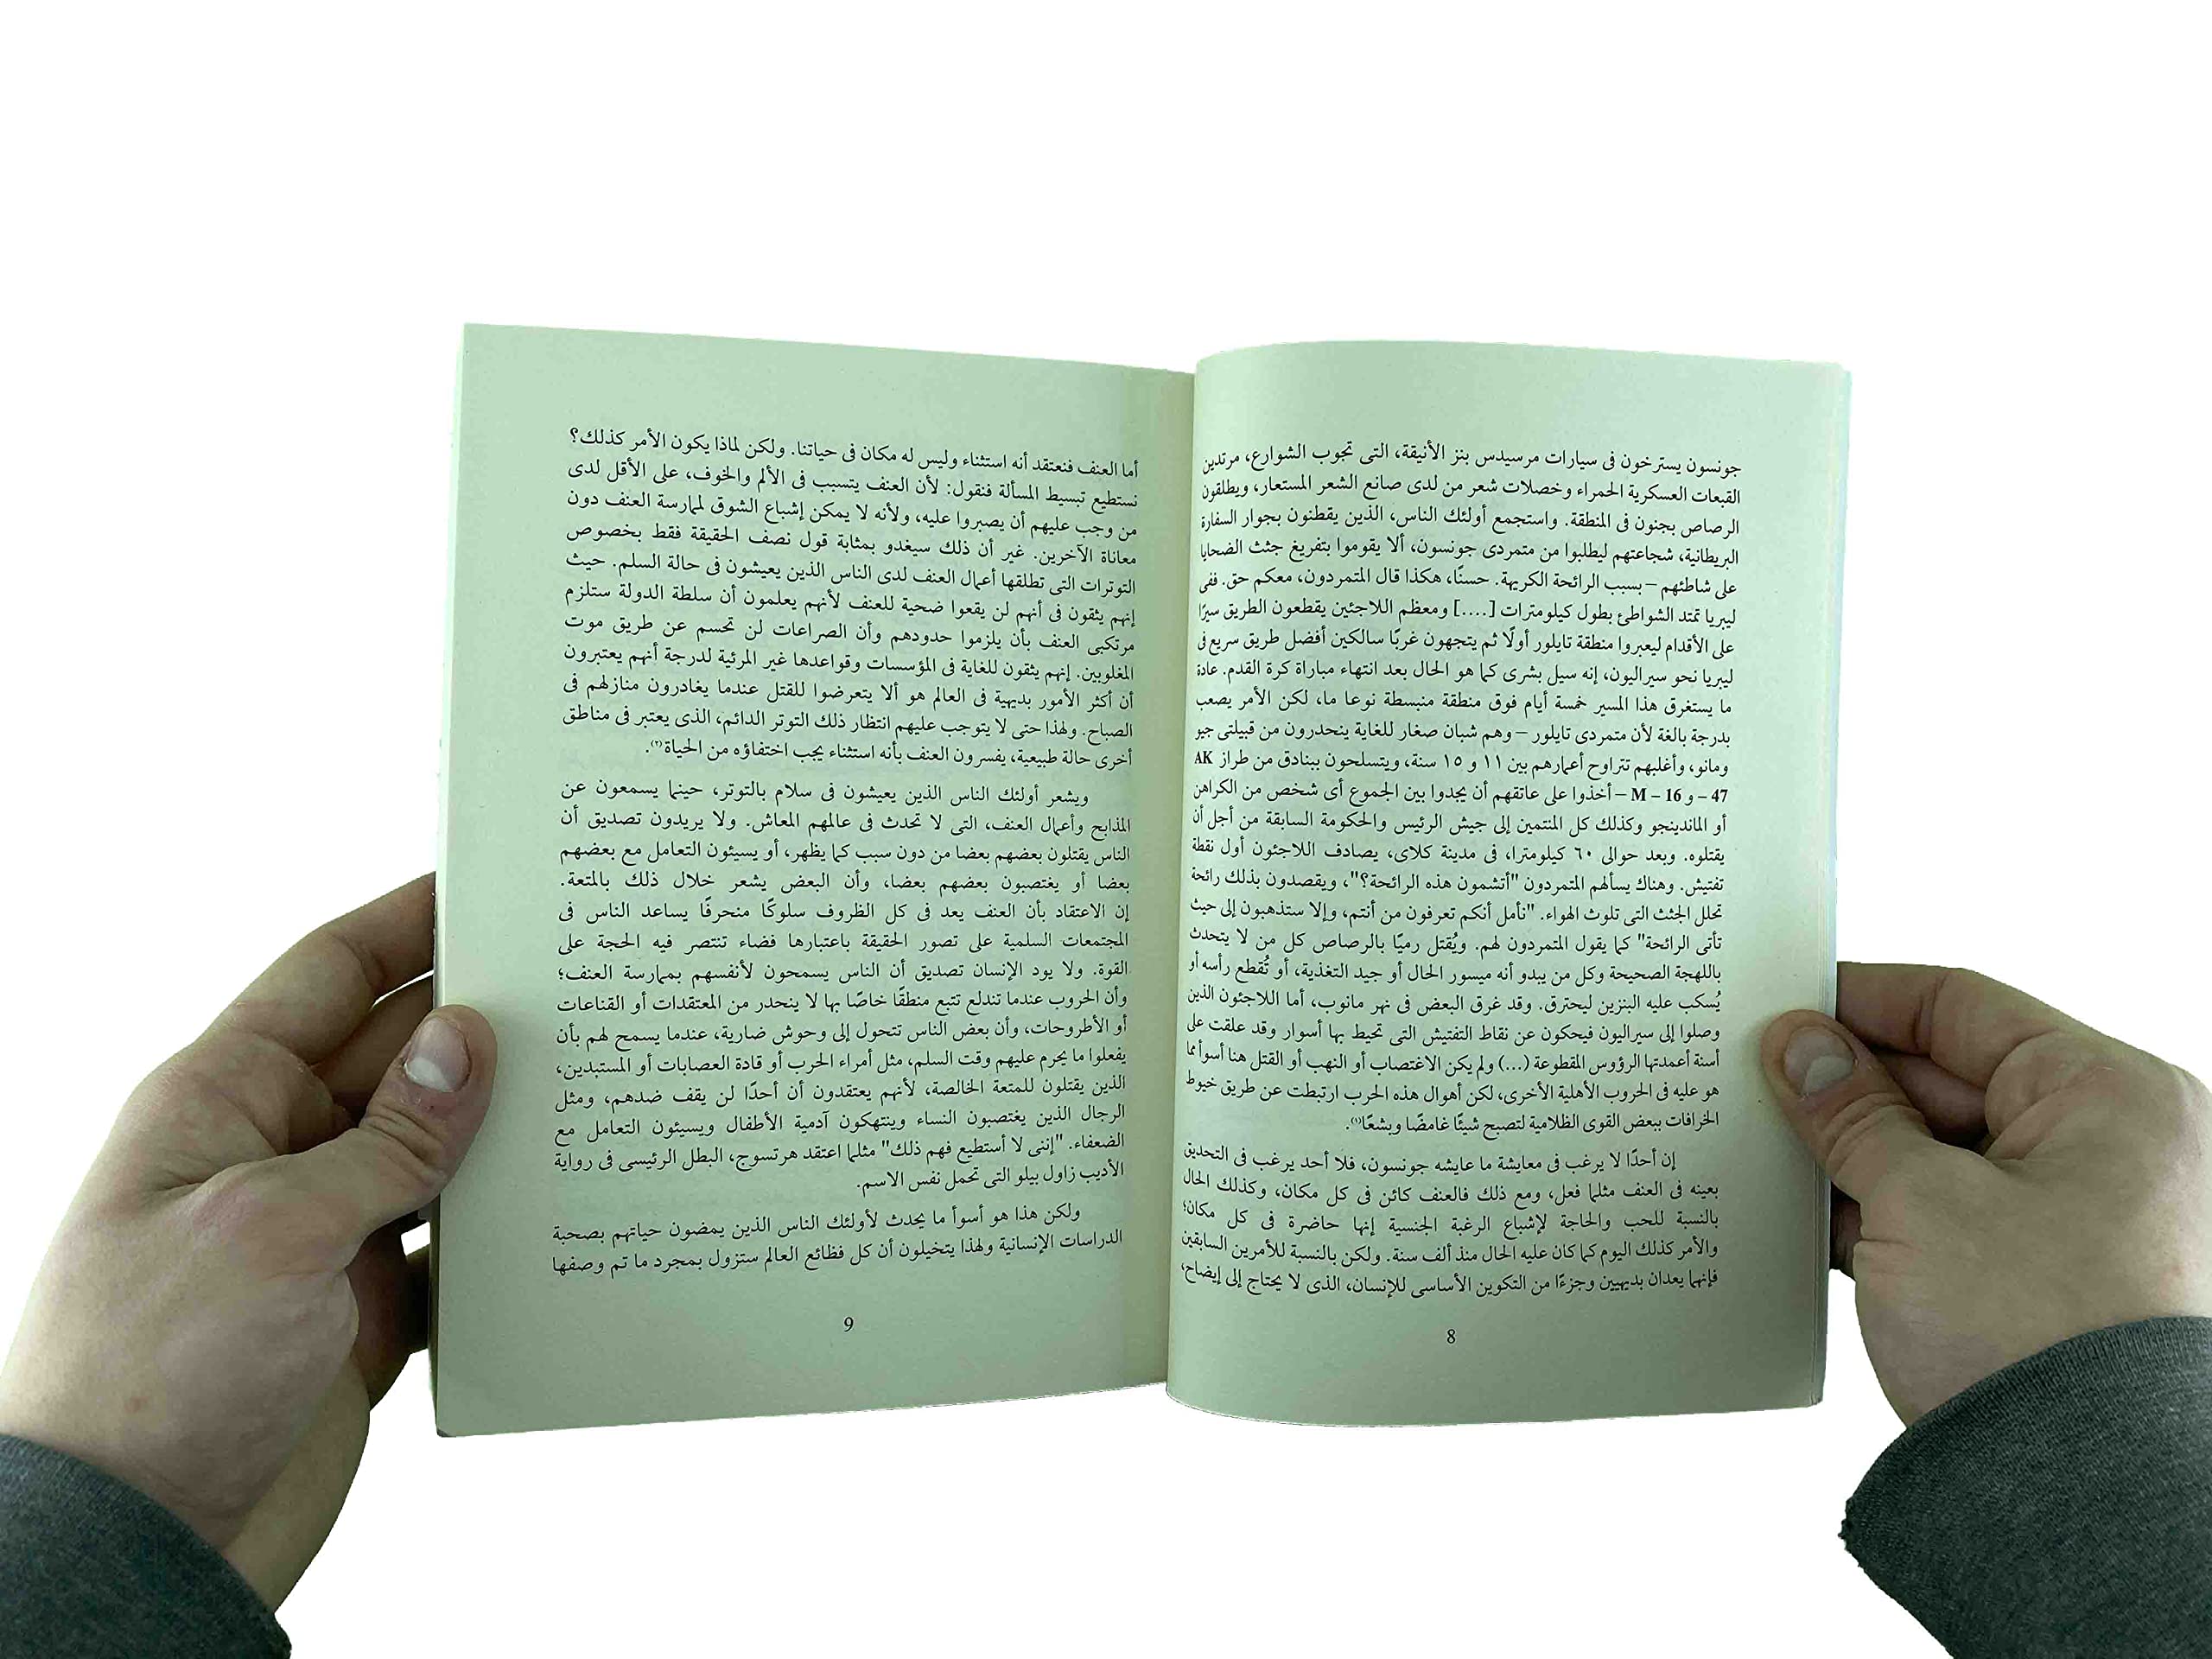 جونسون يسترخون فى سيارات مرسيدس بنز الأنيقة، التى تجوب الشوارع، مرتدين
القبعات العسكرية الحمراء وخصلات شعر من لدى صانع الشعر المستعار، ويطلقون
الرصاص بجنون فى المنطقة. واستجمع أولئك الناس، الذين يقطنون بجوار السفارة
البريطانية، شجاعتهم ليطلبوا من متمردى جونسون، ألا يقوموا بتفريغ جثث الضحايا
على شاطئهم – بسبب الرائحة الكريهة. حسنًا، هكذا قال المتمردون، معكم حق. ففى
ليبريا تمتد الشواطئ بطول كيلومترات [....] ومعظم اللاجئين يقطعون الطريق سيرًا
على الأقدام ليعبروا منطقة تايلور أولًا ثم يتجهون غربًا سالكين أفضل طريق سريع فى
ليبريا نحو سيراليون، إنه سيل بشرى كما هو الحال بعد انتهاء مباراة كرة القدم. عادة
ما يستغرق هذا المسير خمسة أيام فوق منطقة منبسطة نوعا ما، لكن الأمر يصعب
بدرجة بالغة لأن متمردى تايلور – وهم شبان صغار للغاية ينحدرون من قبيلتى جيو
ومانو، وأغلبهم تتراوح أعمارهم بين ١١ و ١٥ سنة، ويتسلحون ببنادق من طراز AK
47 – و M – 16 – أخذوا على عاتقهم أن يجدوا بين الجموع أى شخص من الكراهن
أو الماندينجو وكذلك كل المنتمين إلى جيش الرئيس والحكومة السابقة من أجل أن
يقتلوه. وبعد حوالى ٦٠ كيلومترا، فى مدينة كلاى، يصادف اللاجئون أول نقطة
تفتيش. وهناك يسألهم المتمردون "أتشمون هذه الرائحة؟"، ويقصدون بذلك رائحة
تحلل الجثث التى تلوث الهواء. "نأمل أنكم تعرفون من أنتم، وإلا ستذهبون إلى حيث
تأتى الرائحة" كما يقول المتمردون لهم. ويُقتل رميًا بالرصاص كل من لا يتحدث
باللهجة الصحيحة وكل من يبدو أنه ميسور الحال أو جيد التغذية، أو تُقطع رأسه أو
يُسكب عليه البنزين ليحترق. وقد غرق البعض فى نهر مانوب، أما اللاجئون الذين
وصلوا إلى سيراليون فيحكون عن نقاط التفتيش التى تحيط بها أسوار وقد علقت على
أسنة أعمدتها الرؤوس المقطوعة (...) ولم يكن الاغتصاب أو النهب أو القتل هنا أسوأ مما
هو عليه فى الحروب الأهلية الأخرى، لكن أهوال هذه الحرب ارتبطت عن طريق خيوط
الخرافات ببعض القوى الظلامية لتصبح شيئًا غامضًا وبشعًا(١).
إن أحدًا لا يرغب فى معايشة ما عايشه جونسون، فلا أحد يرغب فى التحديق
بعينه فى العنف مثلما فعل، ومع ذلك فالعنف كائن فى كل مكان، وكذلك الحال
بالنسبة للحب والحاجة لإشباع الرغبة الجنسية إنها حاضرة فى كل مكان؛
والأمر كذلك اليوم كما كان عليه الحال منذ ألف سنة. ولكن بالنسبة للأمرين السابقين
فإنهما يعدان بديهيين وجزءًا من التكوين الأساسى للإنسان، الذى لا يحتاج إلى إيضاح،
8
أما العنف فنعتقد أنه استثناء وليس له مكان فى حياتنا. ولكن لماذا يكون الأمر كذلك؟
نستطيع تبسيط المسألة فنقول: لأن العنف يتسبب فى الألم والخوف، على الأقل لدى
من وجب عليهم أن يصبروا عليه، ولأنه لا يمكن إشباع الشوق لممارسة العنف دون
معاناة الآخرين. غير أن ذلك سيغدو بمثابة قول نصف الحقيقة فقط بخصوص
التوترات التى تطلقها أعمال العنف لدى الناس الذين يعيشون فى حالة السلم. حيث
إنهم يثقون فى أنهم لن يقعوا ضحية للعنف لأنهم يعلمون أن سلطة الدولة ستلزم
مرتكبى العنف بأن يلزموا حدودهم وأن الصراعات لن تحسم عن طريق موت
المغلوبين. إنهم يثقون للغاية فى المؤسسات وقواعدها غير المرئية لدرجة أنهم يعتبرون
أن أكثر الأمور بديهية فى العالم هو ألا يتعرضوا للقتل عندما يغادرون منازلهم فى
الصباح. ولهذا حتى لا يتوجب عليهم انتظار ذلك التوتر الدائم، الذى يعتبر فى مناطق
أخرى حالة طبيعية، يفسرون العنف بأنه استثناء يجب اختفاؤه من الحياة(٢).
ويشعر أولئك الناس الذين يعيشون فى سلام بالتوتر، حينما يسمعون عن
المذابح وأعمال العنف، التى لا تحدث فى عالمهم المعاش. ولا يريدون تصديق أن
الناس يقتلون بعضهم بعضا من دون سبب كما يظهر، أو يسيئون التعامل مع بعضهم
بعضا أو يغتصبون بعضهم بعضا، وأن البعض يشعر خلال ذلك بالمتعة.
إن الاعتقاد بأن العنف يعد فى كل الظروف سلوكًا منحرفًا يساعد الناس فى
المجتمعات السلمية على تصور الحقيقة باعتبارها فضاء تنتصر فيه الحجة على
القوة. ولا يود الإنسان تصديق أن الناس يسمحون لأنفسهم بممارسة العنف؛
وأن الحروب عندما تندلع تتبع منطقًا خاصًا بها لا ينحدر من المعتقدات أو القناعات
أو الأطروحات، وأن بعض الناس تتحول إلى وحوش ضارية، عندما يسمح لهم بأن
يفعلوا ما يحرم عليهم وقت السلم، مثل أمراء الحرب أو قادة العصابات أو المستبدين،
الذين يقتلون للمتعة الخالصة، لأنهم يعتقدون أن أحدًا لن يقف ضدهم، ومثل
الرجال الذين يغتصبون النساء وينتهكون آدمية الأطفال ويسيئون التعامل مع
الضعفاء. "إننى لا أستطيع فهم ذلك" مثلما اعتقد هرتسوج، البطل الرئيسى فى رواية
الأديب زاول بيلو التى تحمل نفس الاسم.
ولكن هذا هو أسوأ ما يحدث لأولئك الناس الذين يمضون حياتهم بصحبة
الدراسات الإنسانية ولهذا يتخيلون أن كل فظائع العالم ستزول بمجرد ما تم وصفها
9